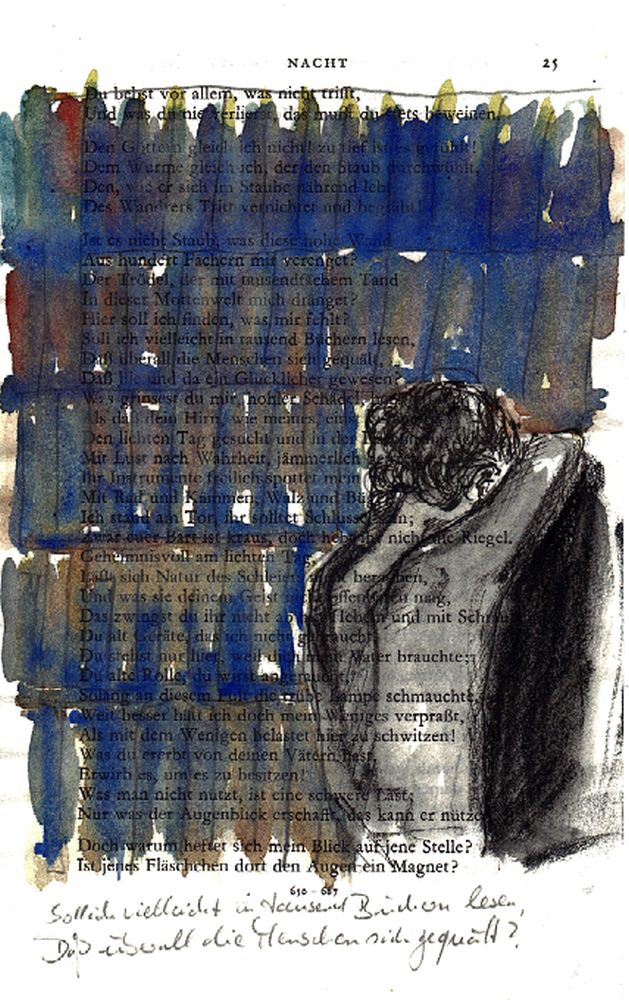 NACHT 25
Du bebst vor allem, was nicht trifft,
Und was du nie verlierst, das mußt du stets beweinen.
Den Göttern gleich ich nicht! zu tief ist es gefühlt!
Dem Wurme gleich ich, der den Staub durchwühlt,
Den, wie er sich im Staube nährend lebt,
Des Wandrers Tritt vernichtet und begräbt!
Ist es nicht Staub, was diese hohe Wand
Aus hundert Fächern mir verenget?
Der Trödel, der mit tausendfachem Tand
In dieser Mottenwelt mich dränget?
Hier soll ich finden, was mir fehlt?
Soll ich vielleicht in tausend Büchern lesen,
Daß überall die Menschen sich gequält,
Daß hie und da ein Glücklicher gewesen?
Was grinsest du mir, hohler Schädel,
Als daß dein Hirn, wie meines, einst
Den lichten Tag gesucht und in der
Mit Lust nach Wahrheit, jämmerlich
Ihr Instrumente freilich spottet mein
Mit Rad und Kämmen, Walz und Bügel
Ich stand am Tor, ihr solltet Schlüssel sein;
Zwar euer Bart ist kraus, doch hebt ihr nicht die Riegel.
Geheimnisvoll am lichten Tag
Läßt sich Natur des Schleiers nicht berauben,
Und was sie deinem Geist nicht offenbaren mag,
Das zwingst du ihr nicht ab mit Hebeln und mit Schrauben
Du alt Geräte, das ich nicht gebraucht,
Du stehst nur hier, weil dich mein Vater brauchte;
Du alte Rolle, du wirst angeraucht,
Solang an diesem Pult die trübe Lampe schmauchte.
Weit besser hätt ich doch mein Weniges verpraßt,
Als mit dem Wenigen belastet hier zu schwitzen!
Was du ererbt von deinen Vätern hast,
Erwirb es, um es zu besitzen!
Was man nicht nützt, ist eine schwere Last;
Nur was der Augenblick erschafft, das kann er nützen
Doch warum heftet sich mein Blick auf jene Stelle?
Ist jenes Fläschchen dort den Augen ein Magnet?
650 – 687
Soll ich vielleicht in tausend Büchern lesen,
Daß überall die Menschen sich gequält?